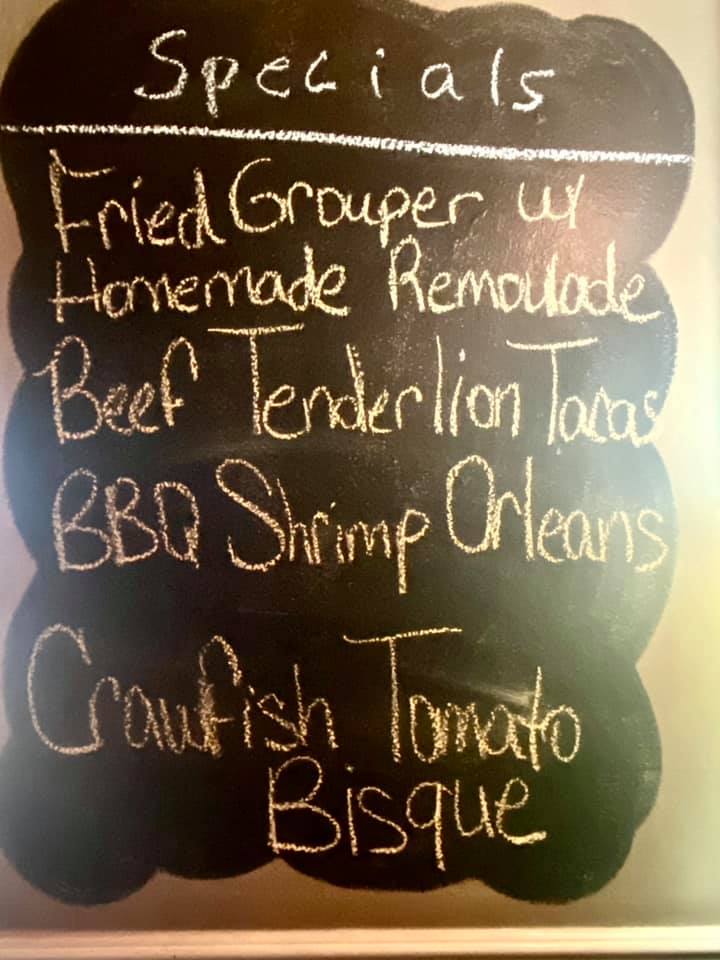 Specials
Fried Grouper w/
Homemade Remoulade
Beef Tenderlion Tacos
BBQ Shrimp Orleans
Crawfish Tomato
Bisque